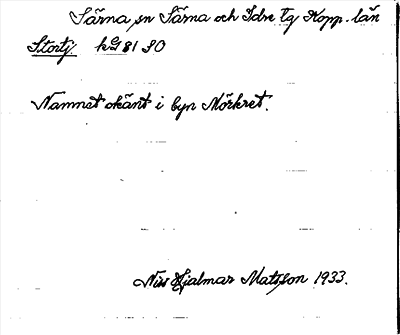 Särna sn Särna och Idre tg Kopp. län
Stortj. kbl 81 SO
Namnet okänt i byn Mörkret.
Nils Hjalmar Matsson 1933.